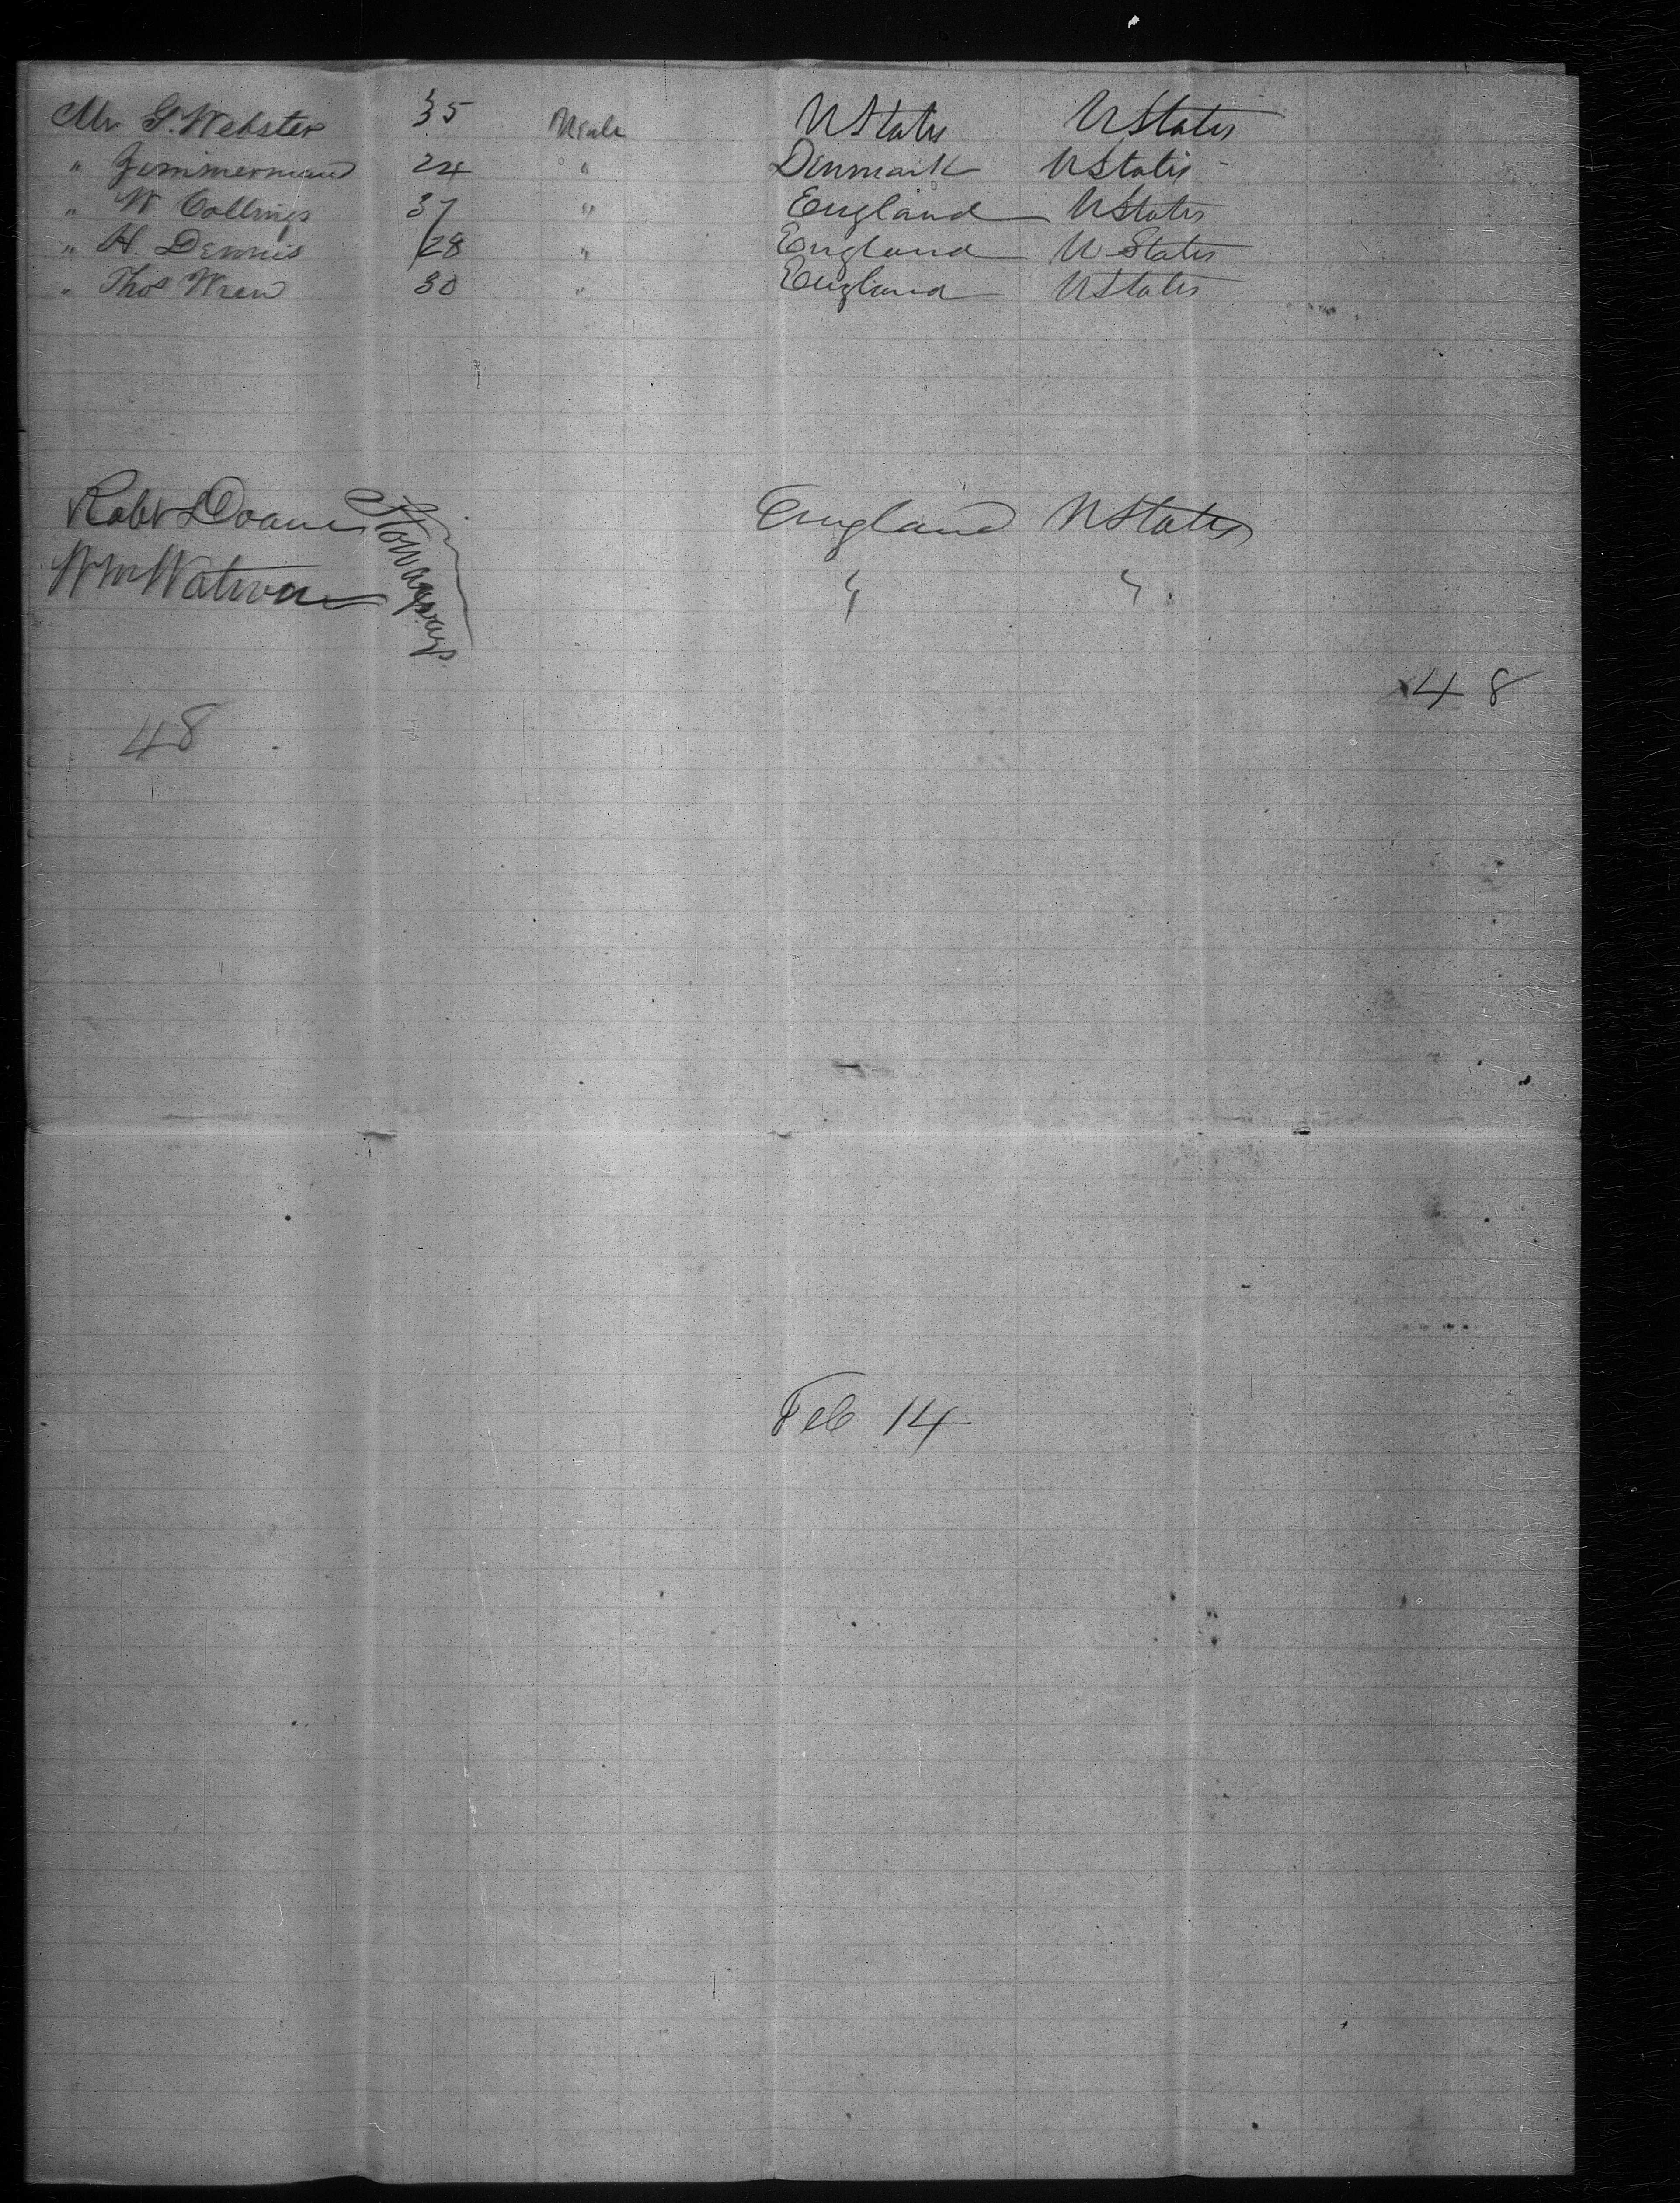 Mr G. Webster 35 Male U States U States
" Zimmermann 24 " Denmark U States
" W. Collings 37 " England U States
" H. Dennis 28 " England U States
" Thos Wren 30 " England U States
Robt Doane Stowaways England U States
Wm Watson " "
48
48
Feb 14